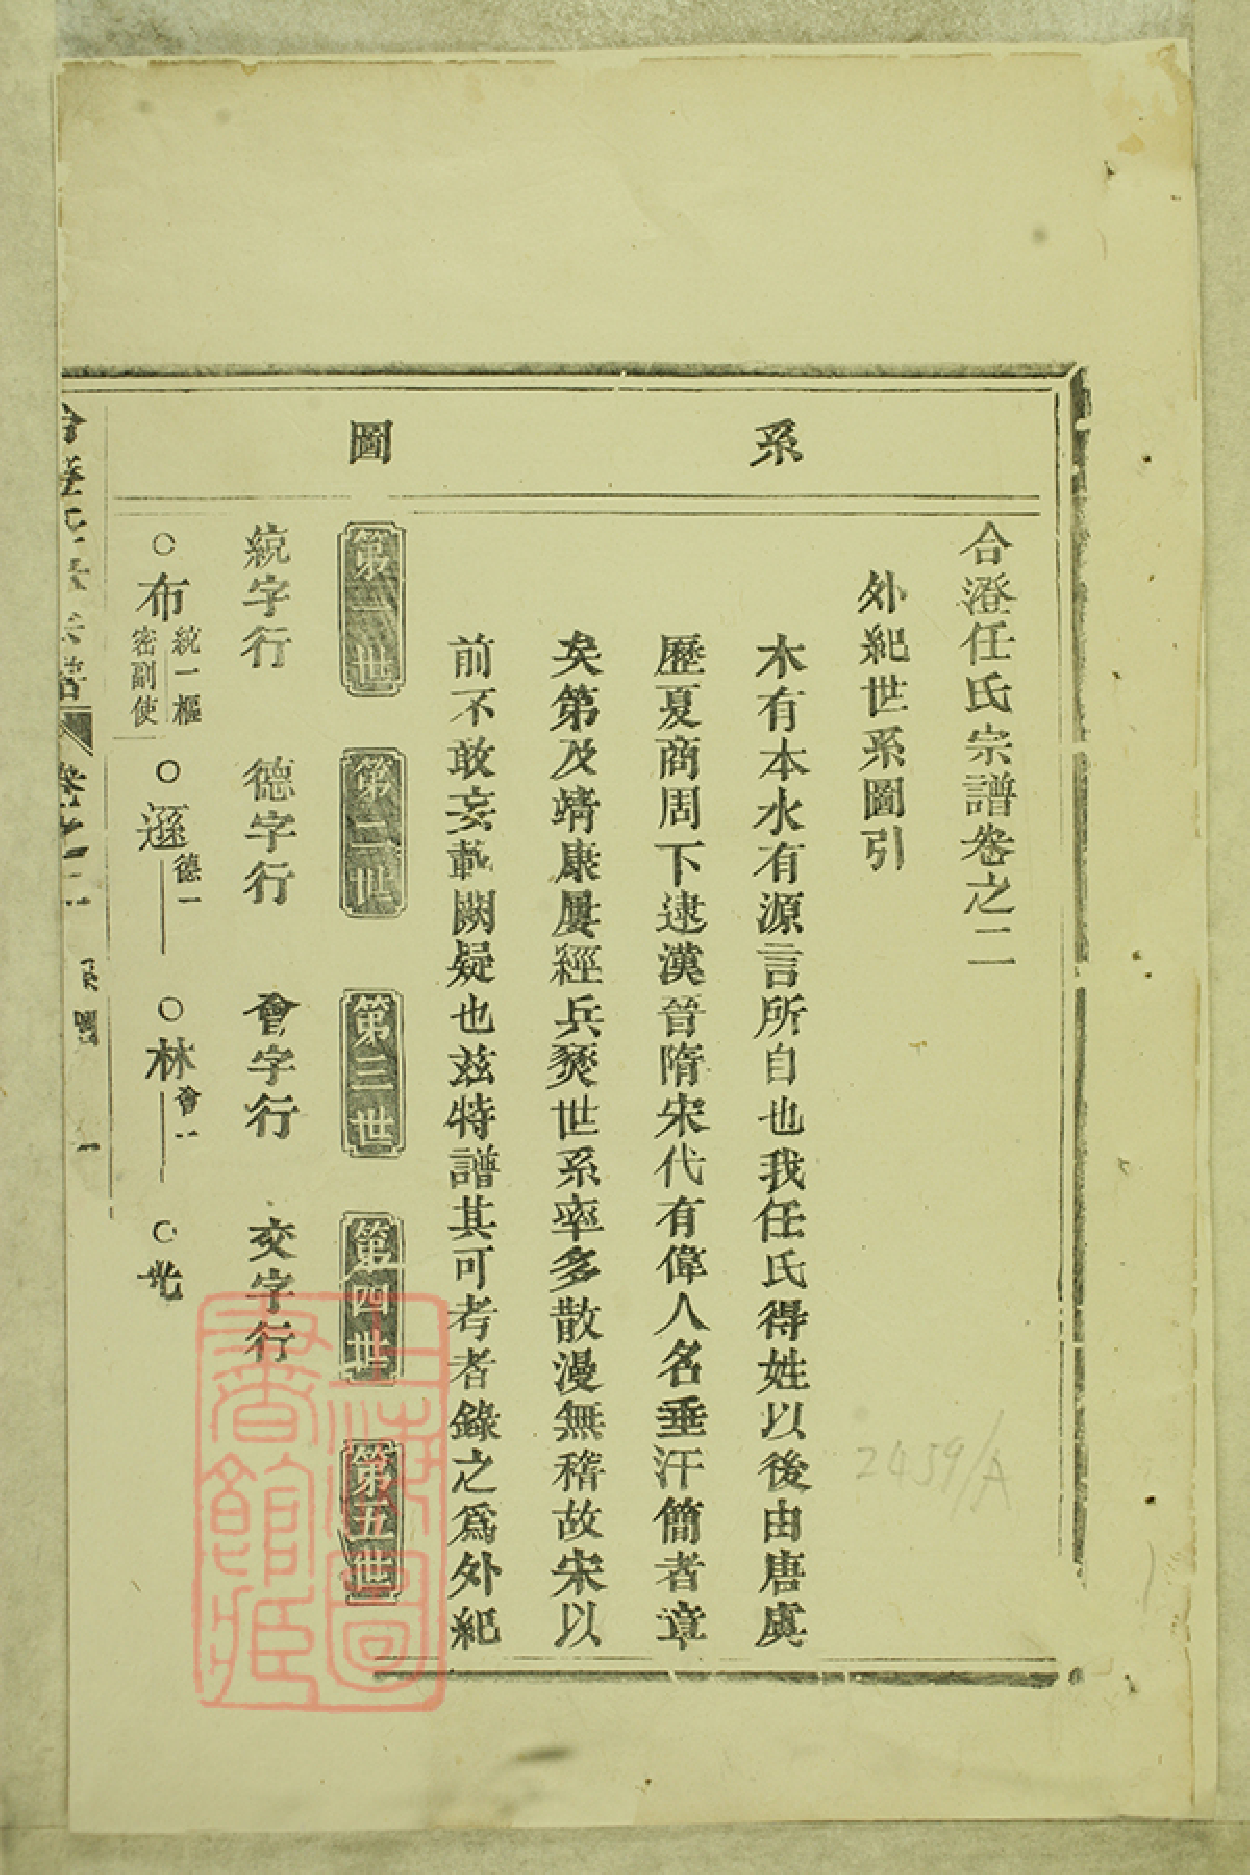 系
圖
合澄任氏宗譜卷之二
外紀世系圖引
木有本水有源言所自也我任氏得姓以後由唐虞
歷夏商周下逮漢晉隋宋代有偉人名垂汗簡者章
矣第及靖康屢經兵燹世系率多散漫無稽故宋以
前不敢妄載闕疑也茲特譜其可考者錄之爲外紀
第一世
第二世
第三世
第四世
第五世
統字行
德字行
會字行
交字行
○布
統一樞
密副使
○遜
德一
○林
會一
○光
合澄任氏宗譜
卷之二
系圖
一
上海圖
書館藏
2459/A